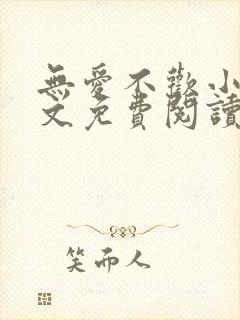 無愛不歡小
文免費閱讀
笑而人